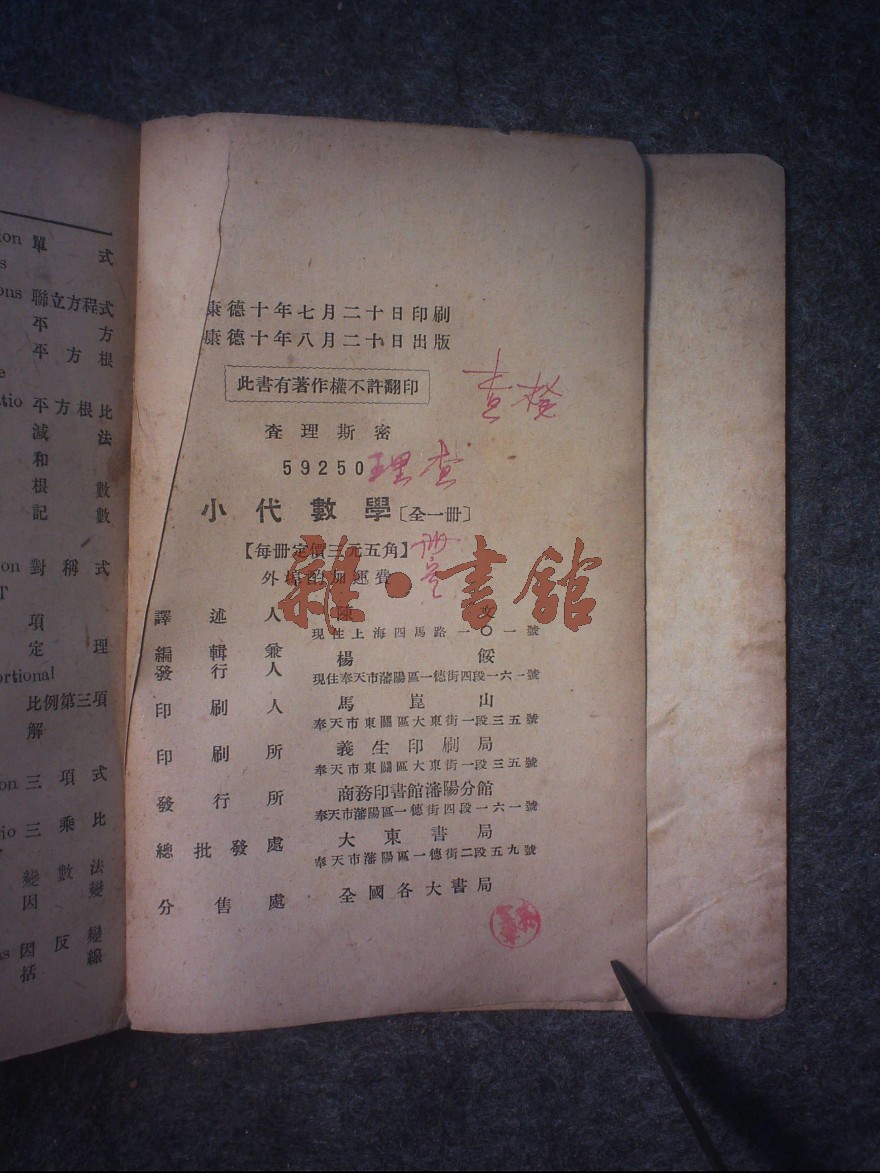 ion 單式
s
ons 聯立方程式
平方
平方根
e
tio 平方根比
減法
和
根數
記數
ion 對稱式
T
項
定理
ortional
比例第三項
解
on 三項式
io 三乘比
變數法
因變
ns 因反變
括線
康德十年七月二十日印刷
康德十年八月二十日出版
此書有著作權不許翻印
查理斯密
59250
理查
小代數學〔全一冊〕
【每冊定價三元五角】
外埠酌加運費
雜·書館
譯述人 陳
現住上海四馬路一〇一號
編輯兼發行人 楊餒
現住奉天市瀋陽區一德街四段一六一號
印刷人 馬崑山
奉天市東關區大東街一段三五號
印刷所 義生印刷局
奉天市東關區大東街一段三五號
發行所 商務印書館瀋陽分館
奉天市瀋陽區一德街四段一六一號
總批發處 大東書局
奉天市瀋陽區一德街二段五九號
分售處 全國各大書局